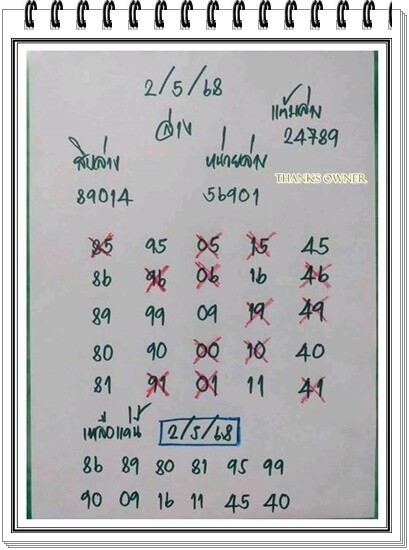 2/5/68
ล่าง
แต้มล่าง
24789
สิบล่าง
หน่วยล่าง
THANKS OWNER
89014
56901
85 95 05 15 45
86 96 06 16 46
89 99 09 19 49
80 90 00 10 40
81 91 01 11 41
เหลือแค่นี้ 2/5/68
86 89 80 81 95 99
90 09 16 11 45 40